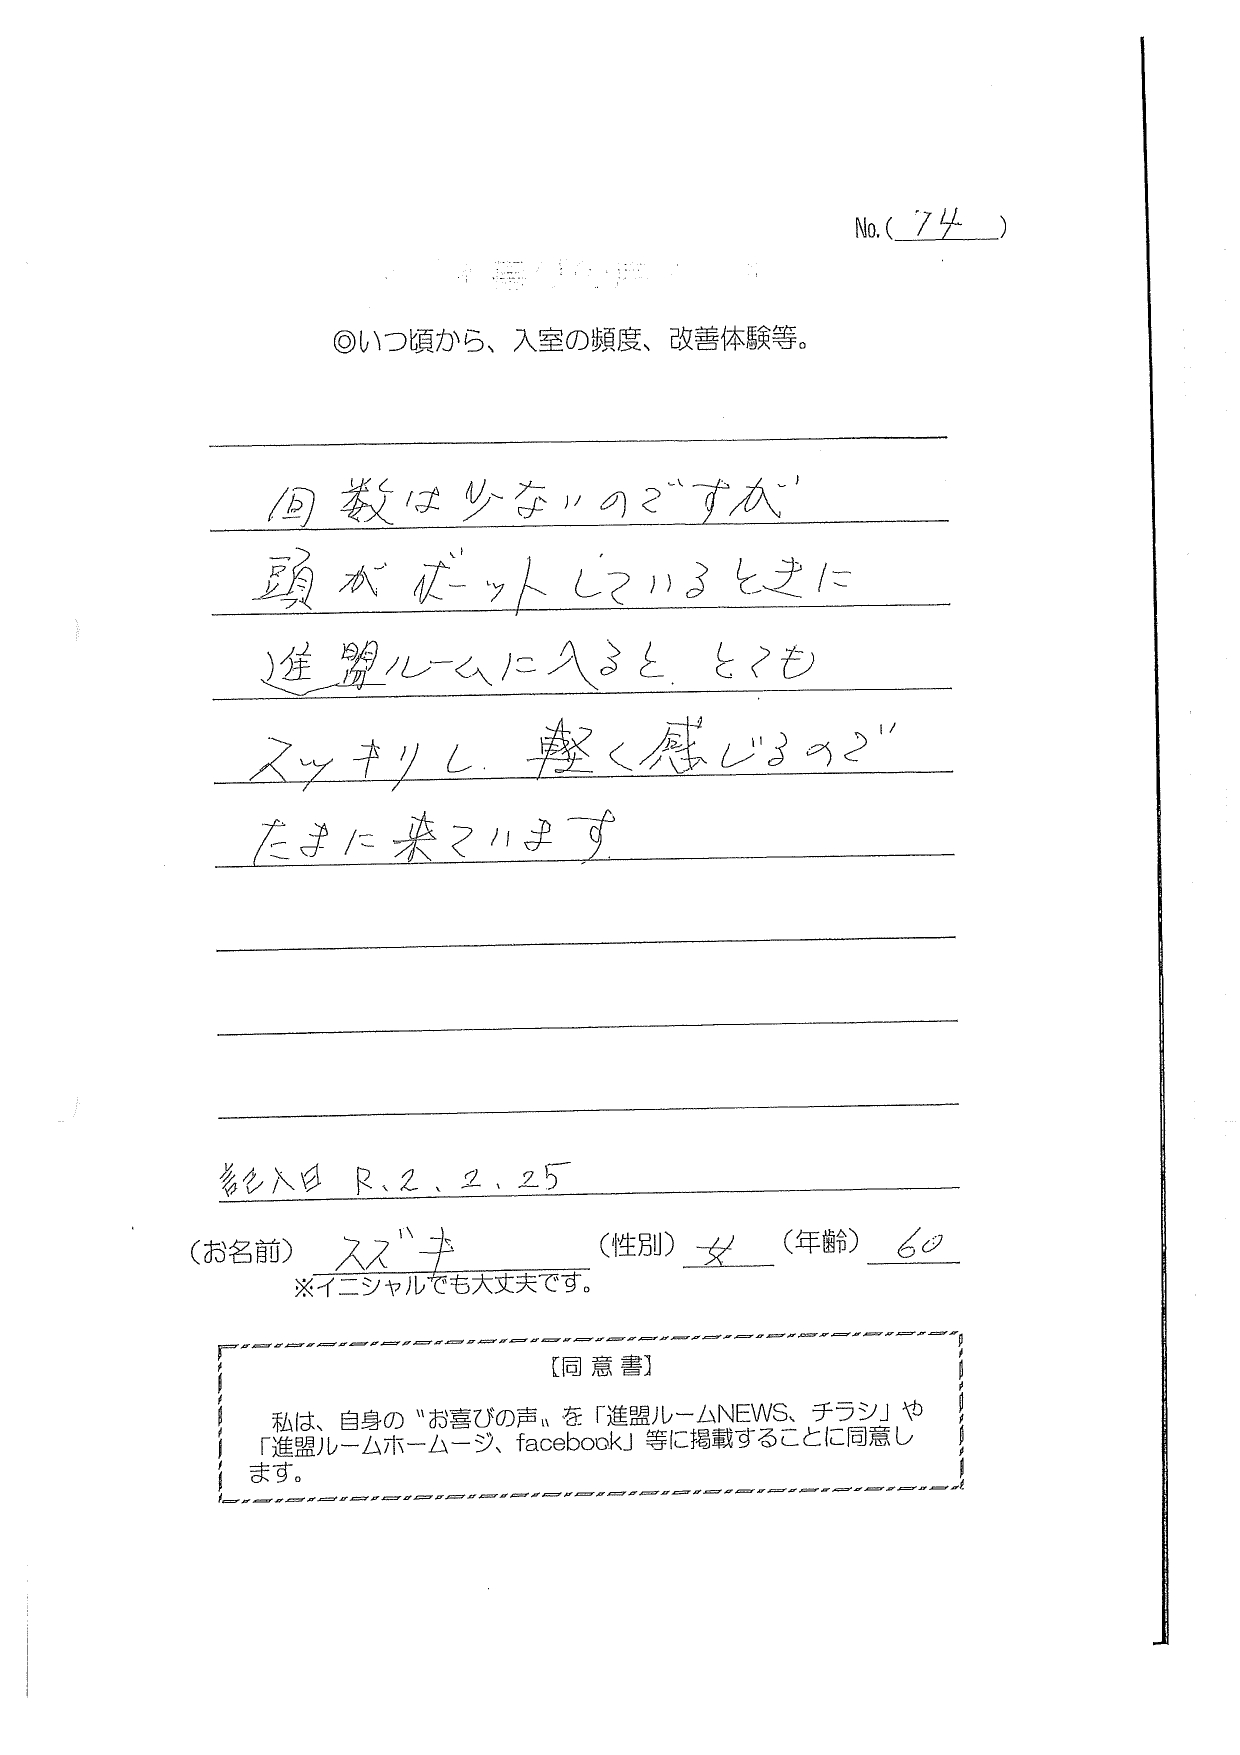 No.(74)
◎いつ頃から、入室の頻度、改善体験等。
回数は少ないのですが
頭がボーットしているときに
進盟ルームに入ると、とても
スッキリし、軽く感じるので
たまに来ています
記入日 R.2.2.25
(お名前) スズキ (性別) 女 (年齢) 60
※イニシャルでも大丈夫です。
【同意書】
私は、自身の〝お喜びの声〟を「進盟ルームNEWS、チラシ」や
「進盟ルームホームージ、facebook」等に掲載することに同意し
ます。